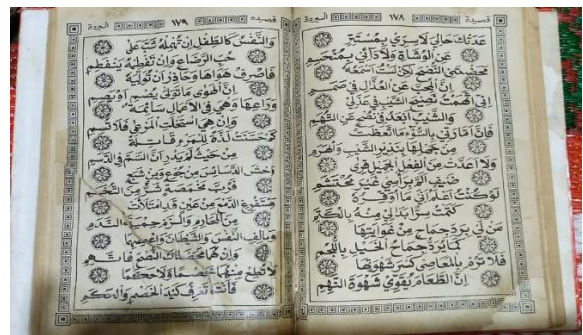 قصيدة ١٧٨ البردة
عَدَتْكَ حَالِيَ لَا سِرِّي بِمُسْتَتِرٍ
عَنِ الْوُشَاةِ وَلَا دَائِي بِمُنْحَسِمِ
مَحَضْتَنِي النُّصْحَ لٰكِنْ لَسْتُ أَسْمَعُهُ
إِنَّ الْمُحِبَّ عَنِ الْعُذَّالِ فِي صَمَمِ
إِنِّي اتَّهَمْتُ نَصِيحَ الشَّيْبِ فِي عَذَلِي
وَالشَّيْبُ أَبْعَدُ فِي نُصْحٍ عَنِ التُّهَمِ
فَإِنَّ أَمَّارَتِي بِالسُّوءِ مَا اتَّعَظَتْ
مِنْ جَهْلِهَا بِنَذِيرِ الشَّيْبِ وَالْهَرَمِ
وَلَا أَعَدَّتْ مِنَ الْفِعْلِ الْجَمِيلِ قِرَى
ضَيْفٍ أَلَمَّ بِرَأْسِي غَيْرَ مُحْتَشِمِ
لَوْ كُنْتُ أَعْلَمُ أَنِّي مَا أُوَقِّرُهُ
كَتَمْتُ سِرًّا بَدَا لِي مِنْهُ بِالْكَتَمِ
مَنْ لِي بِرَدِّ جِمَاحٍ مِنْ غَوَايَتِهَا
كَمَا يُرَدُّ جِمَاحُ الْخَيْلِ بِاللُّجُمِ
فَلَا تَرُمْ بِالْمَعَاصِي كَسْرَ شَهْوَتِهَا
إِنَّ الطَّعَامَ يُقَوِّي شَهْوَةَ النَّهِمِ
قصيدة ١٧٩ البردة
وَالنَّفْسُ كَالطِّفْلِ إِنْ تُهْمِلْهُ شَبَّ عَلَى
حُبِّ الرَّضَاعِ وَإِنْ تَفْطِمْهُ يَنْفَطِمِ
فَاصْرِفْ هَوَاهَا وَحَاذِرْ أَنْ تُوَلِّيَهُ
إِنَّ الْهَوَى مَا تَوَلَّى يُصْمِ أَوْ يَصِمِ
وَرَاعِهَا وَهِيَ فِي الْأَعْمَالِ سَائِمَةٌ
وَإِنْ هِيَ اسْتَحْلَتِ الْمَرْعَى فَلَا تُسِمِ
كَمْ حَسَّنَتْ لَذَّةً لِلْمَرْءِ قَاتِلَةً
مِنْ حَيْثُ لَمْ يَدْرِ أَنَّ السَّمَّ فِي الدَّسَمِ
وَاخْشَ الدَّسَائِسَ مِنْ جُوعٍ وَمِنْ شِبَعٍ
فَرُبَّ مَخْمَصَةٍ شَرٌّ مِنَ التُّخَمِ
وَاسْتَفْرِغِ الدَّمْعَ مِنْ عَيْنٍ قَدِ امْتَلَأَتْ
مِنَ الْمَحَارِمِ وَالْزَمْ حِمْيَةَ النَّدَمِ
وَخَالِفِ النَّفْسَ وَالشَّيْطَانَ وَاعْصِهِمَا
وَإِنْ هُمَا مَحَضَاكَ النُّصْحَ فَاتَّهِمِ
وَلَا تُطِعْ مِنْهُمَا خَصْمًا وَلَا حَكَمًا
فَأَنْتَ تَعْرِفُ كَيْدَ الْخَصْمِ وَالْحَكَمِ